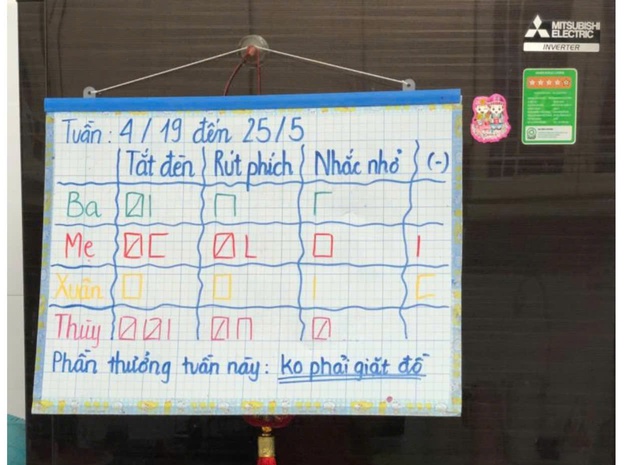 MITSUBISHI
ELECTRIC
INVERTER
Tuần: 4 / 19 đến 25/5
Tắt đèn Rút phích Nhắc nhở (-)
Ba
Mẹ
Xuân
Thùy
Phần thưởng tuần này: ko phải giặt đồ